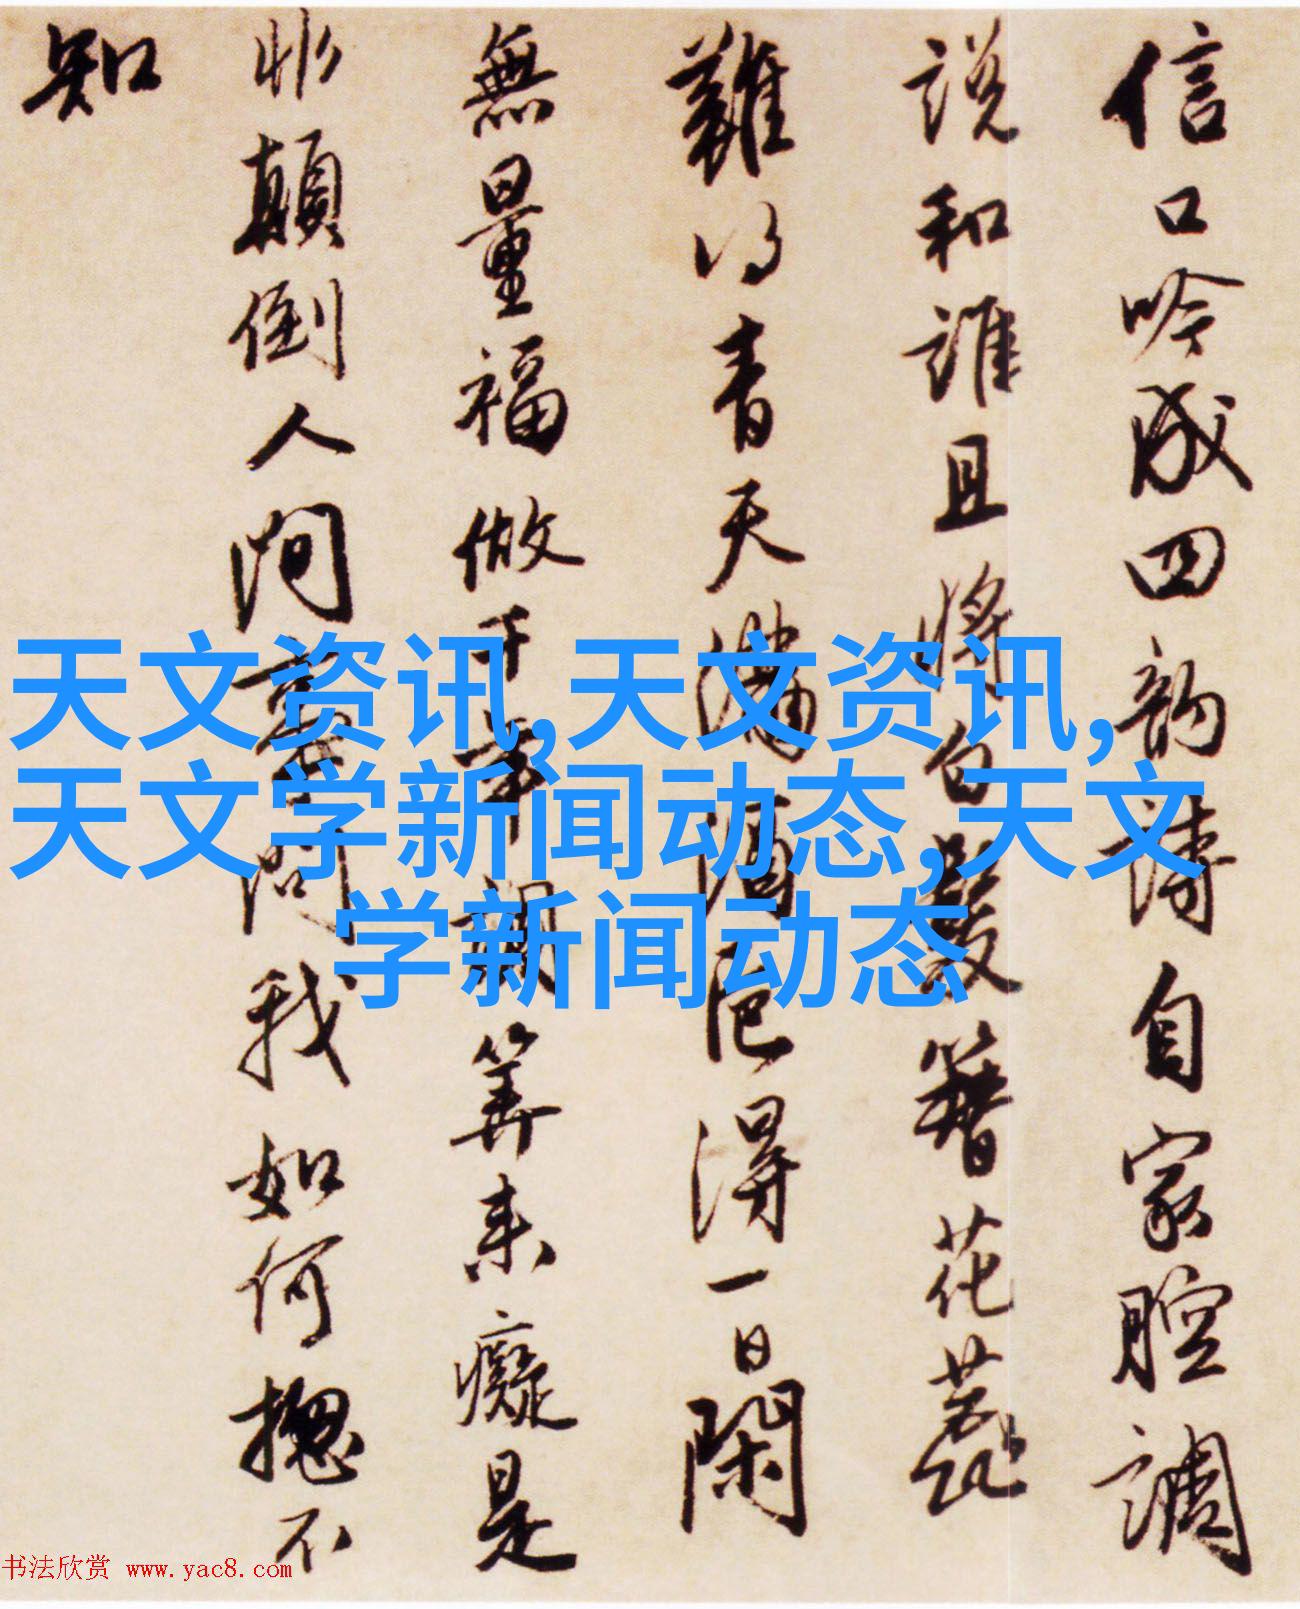 信口吟成四韵詩自家腔調
說和誰且將白髮簪花蕊
難以青天滿酒卮得一日閑
無量福做千年調算来癡是
非顛倒人間事問我如何摠不
知
天文资讯,天文资讯,
天文学新闻动态,天文
学新闻动态
书法欣赏 www.yac8.com